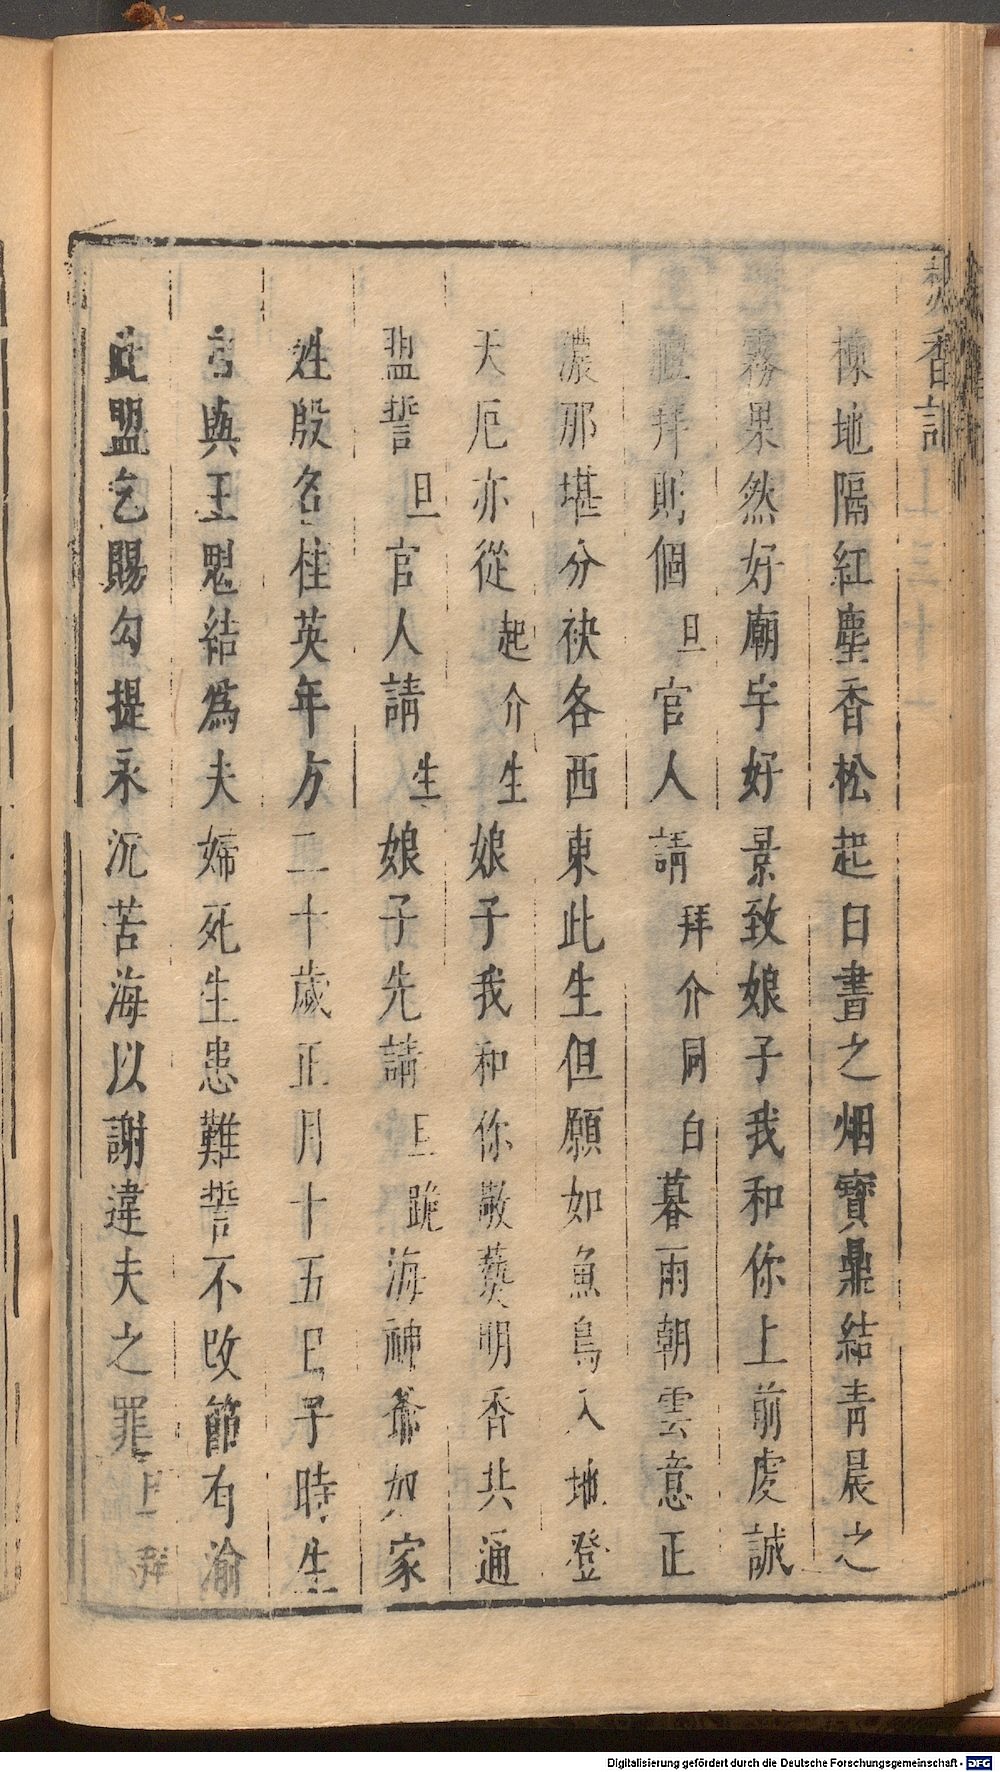 焚香記
棟地隔紅塵香松起白晝之烟寶鼎結青晨之
霧果然好廟宇好景致娘子我和你上前虔誠
禮拜則個旦官人請拜介同白暮雨朝雲意正
濃那堪分袂各西東此生但願如魚鳥入地登
天厄亦從起介生娘子我和你散爇明香共通
盟誓旦官人請生娘子先請旦跪海神爺奴家
姓殷名桂英年方二十歲正月十五巳子時生
與王魁結爲夫婦死生患難誓不改節有渝
此盟乞賜勾提永沉苦海以謝違夫之罪旦拜
Digitalisierung gefördert durch die Deutsche Forschungsgemeinschaft - DFG